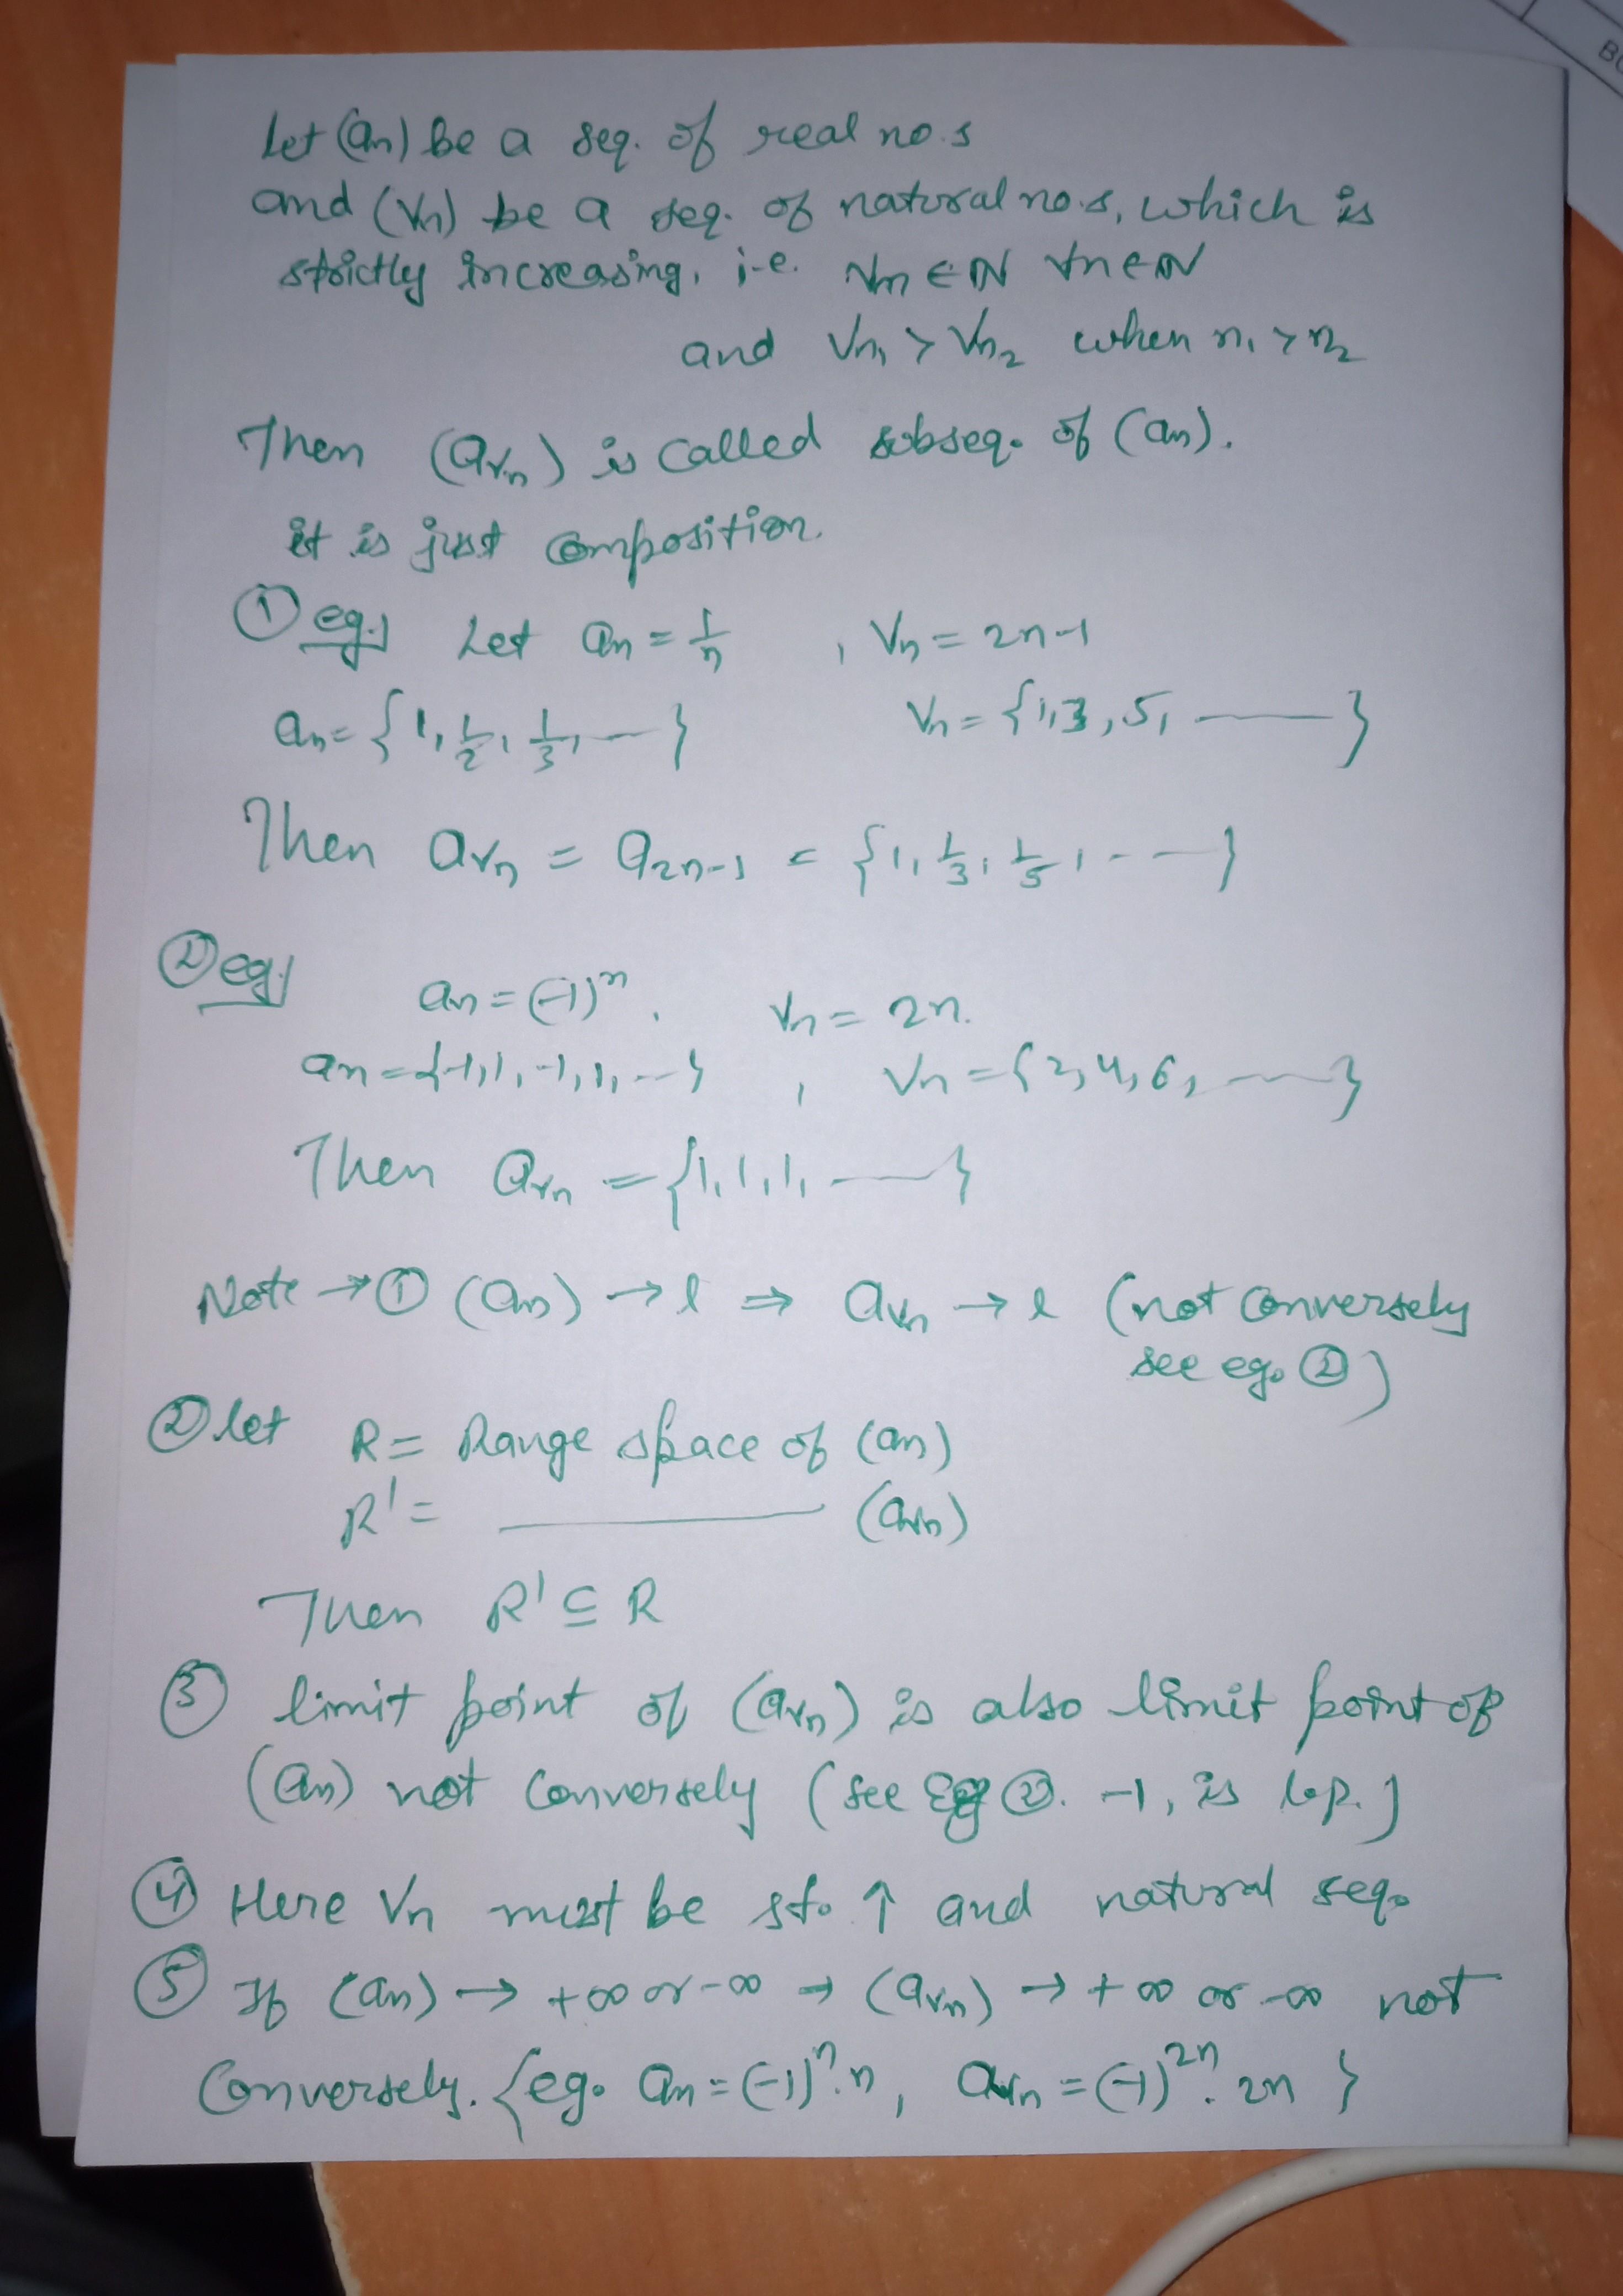 BO
Let (an) be a seq. of real no.s
and (Vn) be a seq. of natural no.s, which is
strictly increasing, i.e. Vn ∈ N ∀n∈N
and Vn₁ > Vn₂ when n₁ > n₂
Then (aVn) is called subseq. of (an).
it is just composition.
① eg.) Let an = 1/n , Vn = 2n-1
an = {1, 1/2, 1/3, — } Vn = {1,3,5, — }
Then aVn = a2n-1 = {1, 1/3, 1/5, - - }
② eg.) an = (-1)ⁿ, Vn = 2n.
an = {-1,1,-1,1, -- } , Vn = {2,4,6, — }
Then aVn = {1,1,1, — }
Note → ① (an) → l ⇒ aVn → l (not conversely
see eg. ②)
② let R = Range space of (an)
R' = ———— (aVn)
Then R' ⊆ R
③ limit point of (aVn) is also limit point of
(an) not conversely (see Eg ②. -1, is l.p.)
④ Here Vn must be st. ↑ and natural seq.
⑤ If (an) → +∞ or -∞ ⇒ (aVn) → +∞ or -∞ not
conversely. {eg. an = (-1)ⁿ.n, aVn = (-1)²ⁿ. 2n }